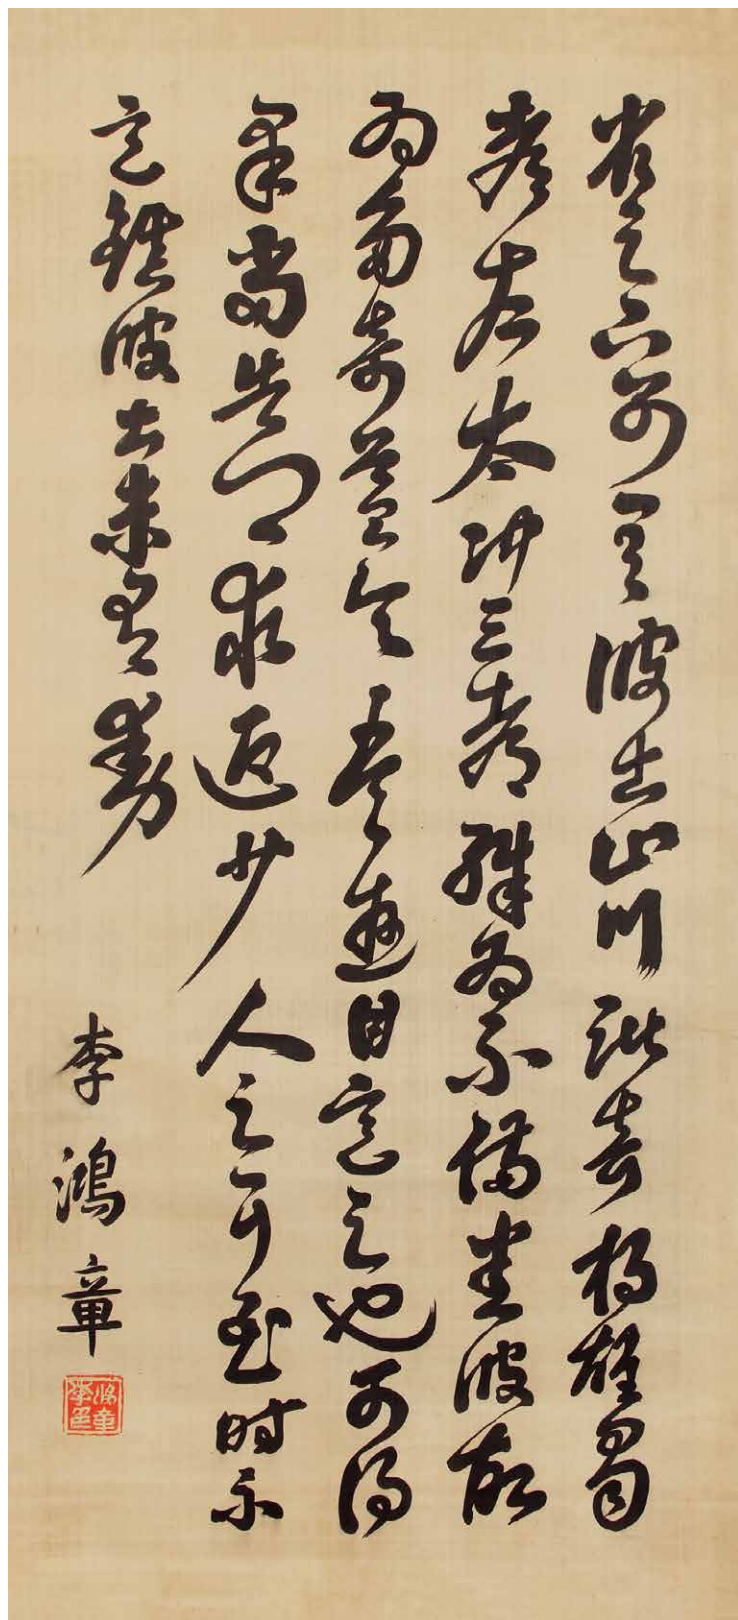 省足下別具彼土山川諸奇揚雄蜀
都左太沖三都殊為不備悉彼故
為多奇益令其遊目意足也可得
果當告卿求迎少人足耳至時示
意鎮彼土未有動
李鴻章